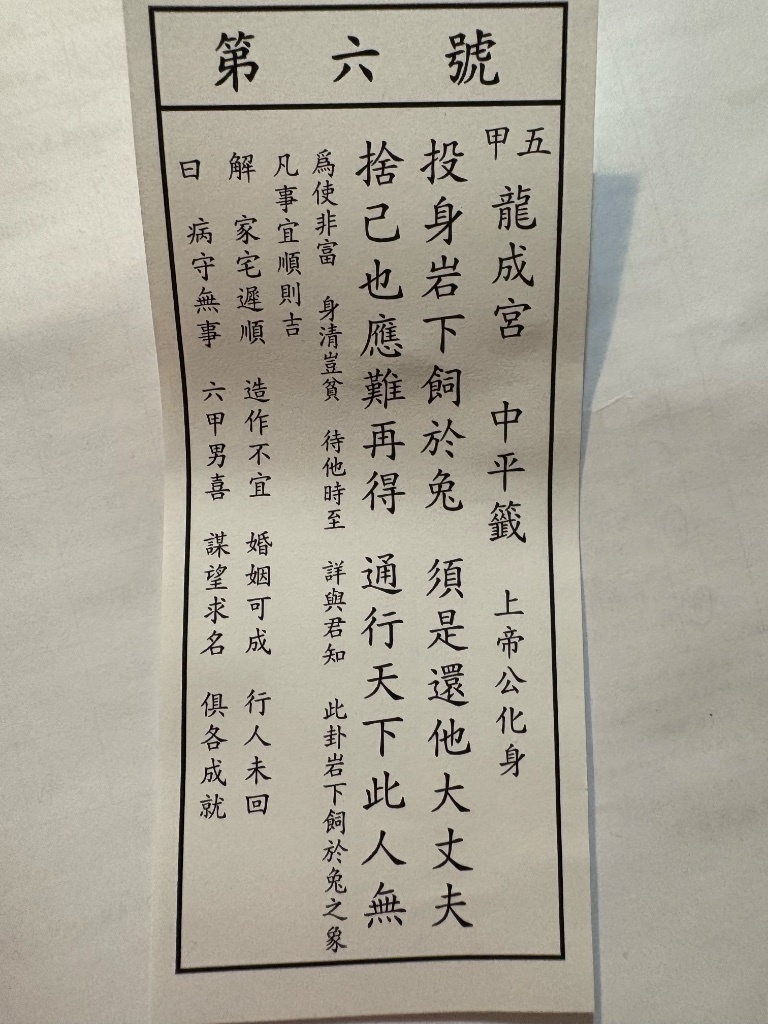 第六號
五甲 龍成宮 中平籤 上帝公化身
投身岩下飼於兔 須是還他大丈夫
捨己也應難再得 通行天下此人無
爲使非富 身清豈貧 待他時至 詳與君知 此卦岩下飼於兔之象
凡事宜順則吉
解 家宅遲順 造作不宜 婚姻可成 行人未回
曰 病守無事 六甲男喜 謀望求名 俱各成就